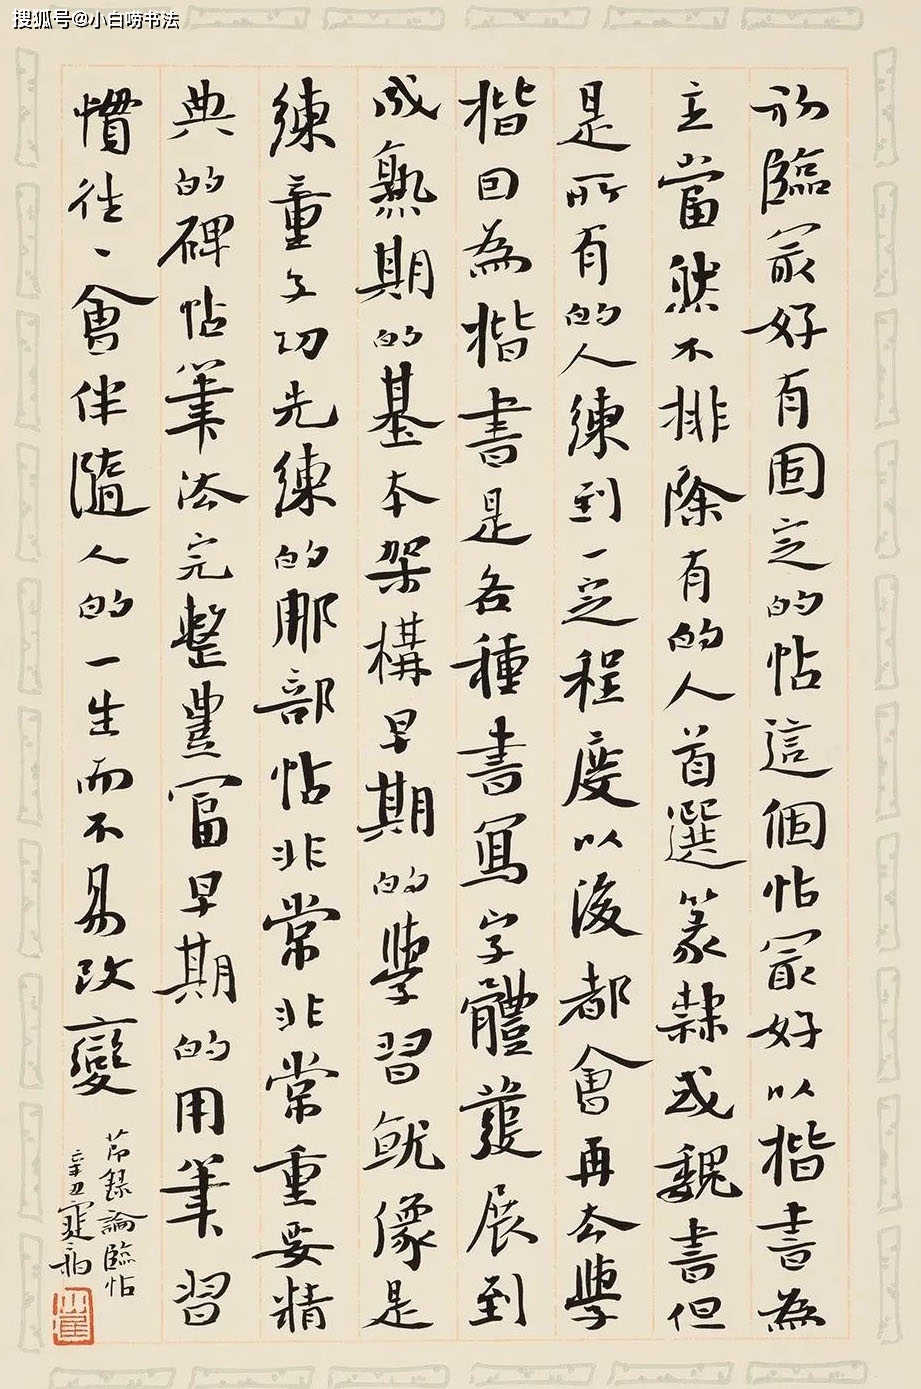 搜狐号@小白唠书法
初臨最好有固定的帖這個帖最好以楷書為
主當然不排除有的人首選篆隸或魏書但
是所有的人練到一定程度以後都會再去學
楷回為楷書是各種書寫字體發展到
成熟期的基本架構早期的學習就像是
練童子功先練的那部帖非常非常重要精
典的碑帖筆法完整豐富早期的用筆習
慣往、會伴隨人的一生而不易改變
節錄論臨帖
辛丑寔翁